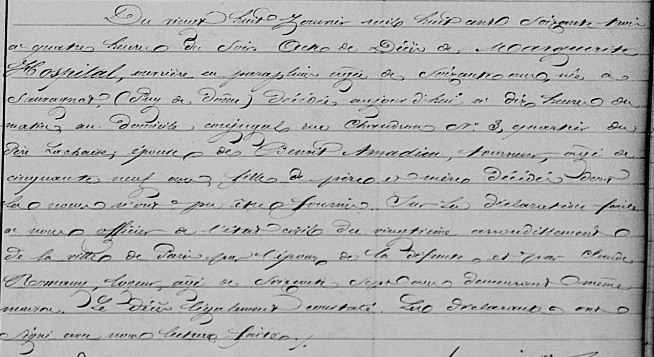 Du vingt huit Janvier mil huit cent soixante trois
à quatre heures du soir Acte de Décès de Marguerite
Hospital, ouvrière en parapluie âgée de soixante ans née à
(Puy de Dôme) Décédée aujourd'hui à dix heures du
matin au domicile conjugal rue Chaudron N° 3, quartier du
Père Lachaise; épouse de Benoît Amadieu, tourneur, âgé de
cinquante neuf ans, fille de père et mère décédés dont
les noms n'ont pu être fournis. Sur la déclaration faite
à nous officier de l'état civil du vingtième arrondissement
de la ville de Paris par l'époux de la défunte et par Claude
Romany, logeur, âgé de soixante sept ans demeurant même
maison. Le décès légalement constaté. Les déclarants ont
signé avec nous lecture faite./.